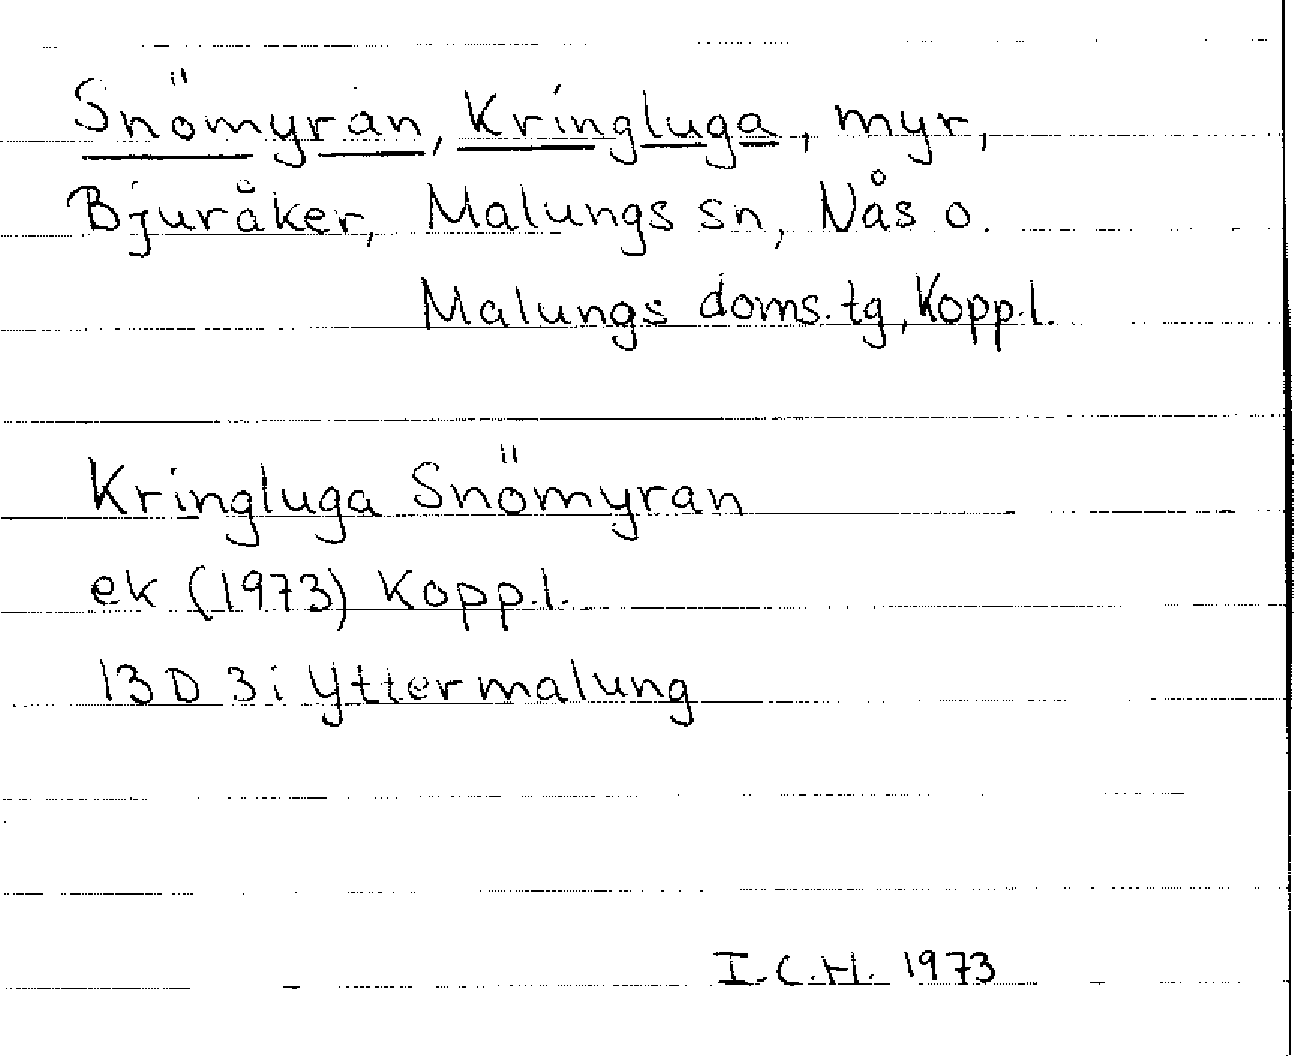 Snömyran, Kringluga, myr,
Bjuråker, Malungs sn, Nås o.
Malungs doms.tg, Kopp.l.
Kringluga Snömyran
ek (1973) Kopp.l.
13D 3i Yttermalung
I.C.H. 1973